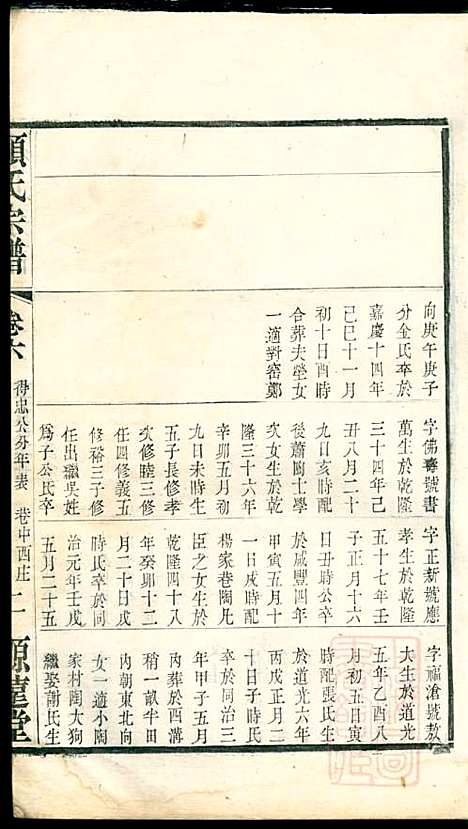 向庚午庚子
分金氏卒於
嘉慶十四年
己巳十一月
初十日酉時
合葬夫塋女
一適對窑鄭
字佛壽號書
萬生於乾隆
三十四年己
丑八月二十
九日亥時配
後蕭岡士學
次女生於乾
隆三十六年
辛卯五月初
九日未時生
五子長修孝
次修睦三修
任四修義五
修裕三子修
任出繼吳姓
為子公氏卒
字正新號應
孝生於乾隆
五十七年壬
子正月十六
日丑時公卒
於咸豐四年
甲寅五月十
一日戌時配
楊家巷陶凡
臣之女生於
乾隆四十八
年癸卯十二
月二十日戌
時氏卒於同
治元年壬戌
五月二十五
字福滄號敖
大生於道光
五年乙酉八
月初五日寅
時配張氏生
於道光六年
丙戌正月二
十日子時氏
卒於同治三
年甲子五月
內葬於西溝
稍一畝半田
內朝東北向
女一適小陶
家村陶大狗
繼娶謝氏生
顧氏宗譜
卷六
得忠公分年表
巷中西庄
二
源遠堂